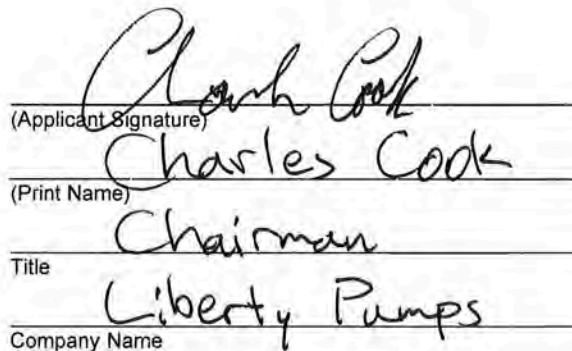 Charles Cook
(Applicant Signature)
Charles Cook
(Print Name)
Chairman
Title
Liberty Pumps
Company Name